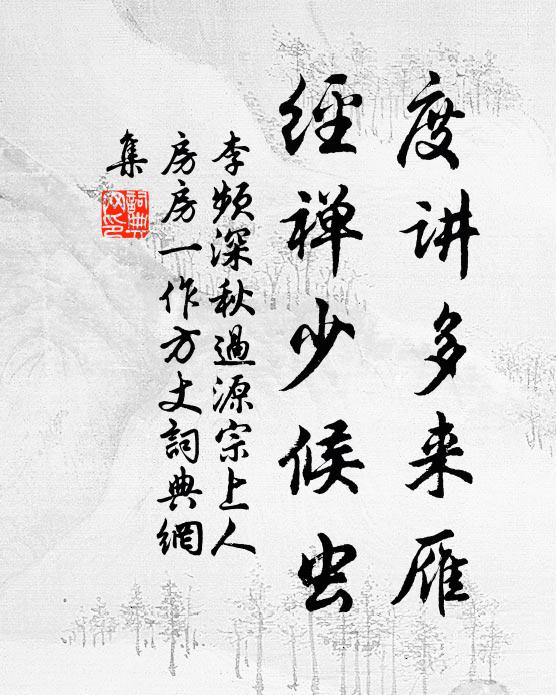 度讲多来雁
经禅少候虫
李频深秋過源宗上人
房房一作方丈詞典網
集
詞典
网印